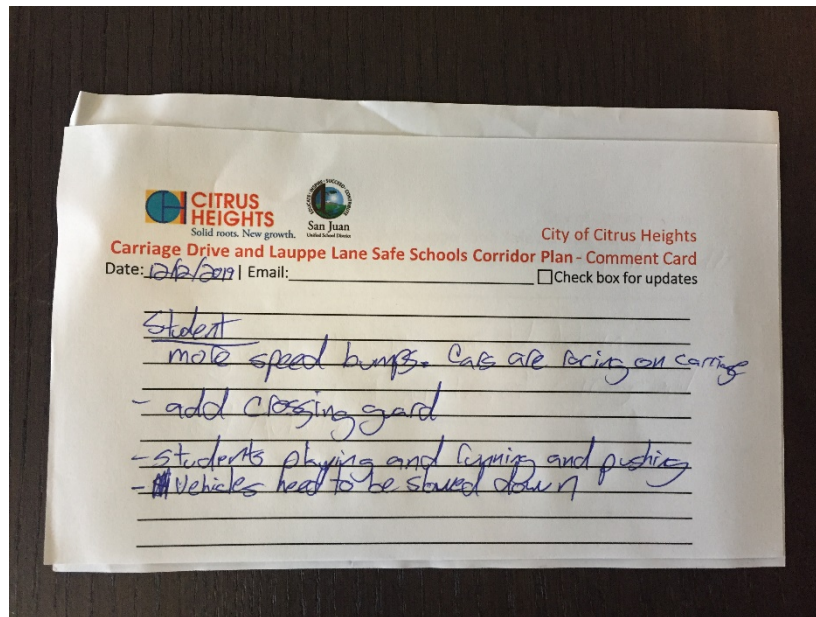 CITRUS
HEIGHTS
Solid roots. New growth.
San Juan
Unified School District
City of Citrus Heights
Carriage Drive and Lauppe Lane Safe Schools Corridor Plan - Comment Card
Date: 12/2/2019 | Email: Check box for updates
Student
more speed bumps. Cars are racing on carriage
- add crossing gard
- students playing and running and pushing
- vehicles need to be slowed down